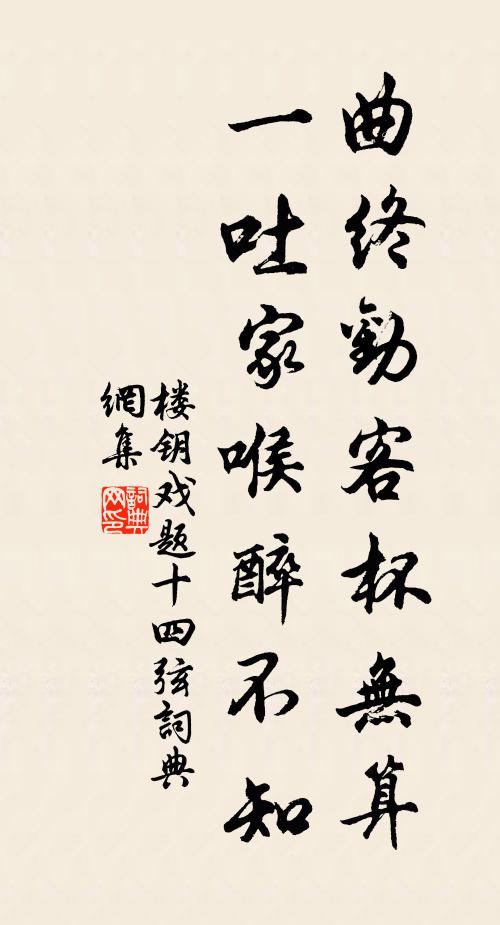 曲终勸客杯無算
一吐家喉醉不知
楼钥戏题十四弦詞典
網集
詞典
网印